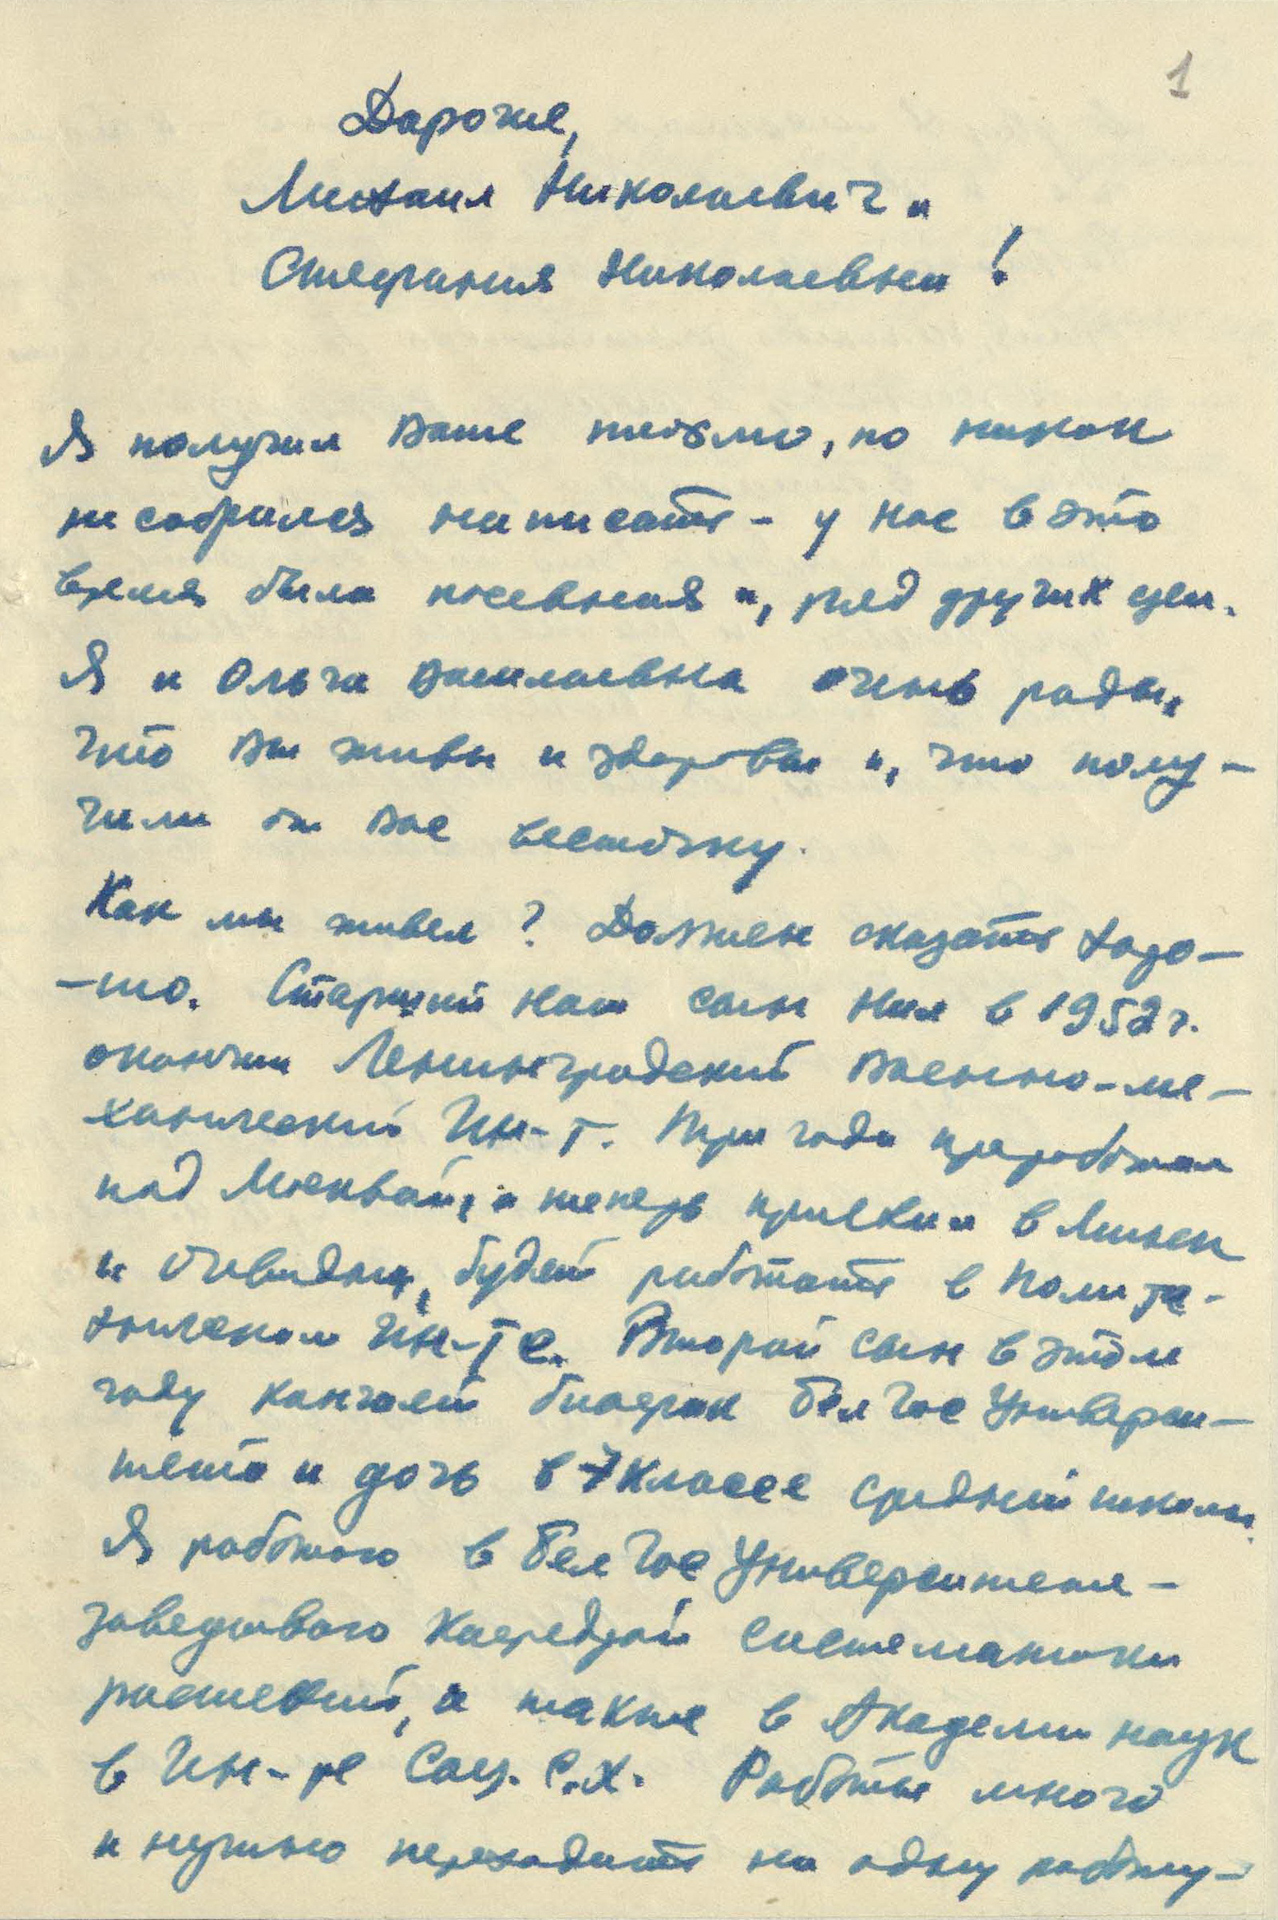 1
Дарогие,
Михаил Николаевич и
Стефания Николаевна!
Я получил Ваше письмо, но никак
не собрался написать - у нас в это
время была посевная и, ряд других
Я и Ольга Василевна очень рады,
что Вы живы и здоровы и, что полу-
чили от Вас весточку.
Как мы живем? Должен сказать хоро-
-шо. Старший наш сын Нил в 1952 г.
окончил Ленинградский Военно-ме-
ханический Ин-т. Три года проработал
под Москвой, и теперь приехал в Минск
и очевидно, будет работать в Полите-
хническом Ин-те. Второй сын в этом
году кончает биофак БелГос Универси-
тета и дочь в 7 классе средней школы.
Я работаю в БелГос Университете -
заведываю Кафедрой систематики
растений, а также в Академии наук
в Ин-те Соц. С.Х. Работы много
и нужно переходить на одну работу-